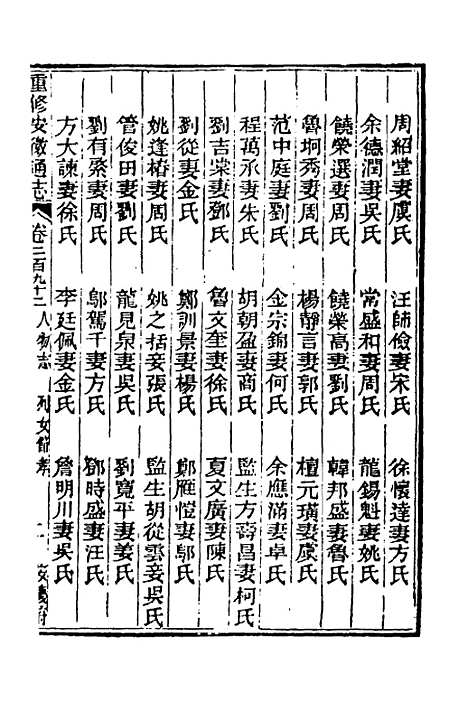 周紹堂妻虞氏　汪師儉妻宋氏　徐懷達妻方氏
余德潤妻吳氏　常盛和妻周氏　龍錫魁妻姚氏
饒榮選妻周氏　饒榮高妻劉氏　韓邦盛妻魯氏
魯坰秀妻周氏　楊靜言妻郭氏　檀元璜妻虞氏
范中庭妻劉氏　金宗錦妻何氏　余應滿妻卓氏
程萬承妻朱氏　胡朝盈妻商氏　監生方壽昌妻柯氏
劉吉棠妻鄧氏　魯文奎妻徐氏　夏文廣妻陳氏
劉從妻金氏　鄭訓景妻楊氏　鄭雁愷妻鄔氏
姚逢椿妻周氏　姚之括妾張氏　監生胡從雲妾吳氏
管俊田妻劉氏　龍見泉妻吳氏　劉寬平妻姜氏
劉有眾妻周氏　鄔駕千妻方氏　鄧時盛妻汪氏
方大諫妻徐氏　李廷佩妻金氏　詹明川妻吳氏
重修安徽通志　卷二百九十二　人物志　列女節孝